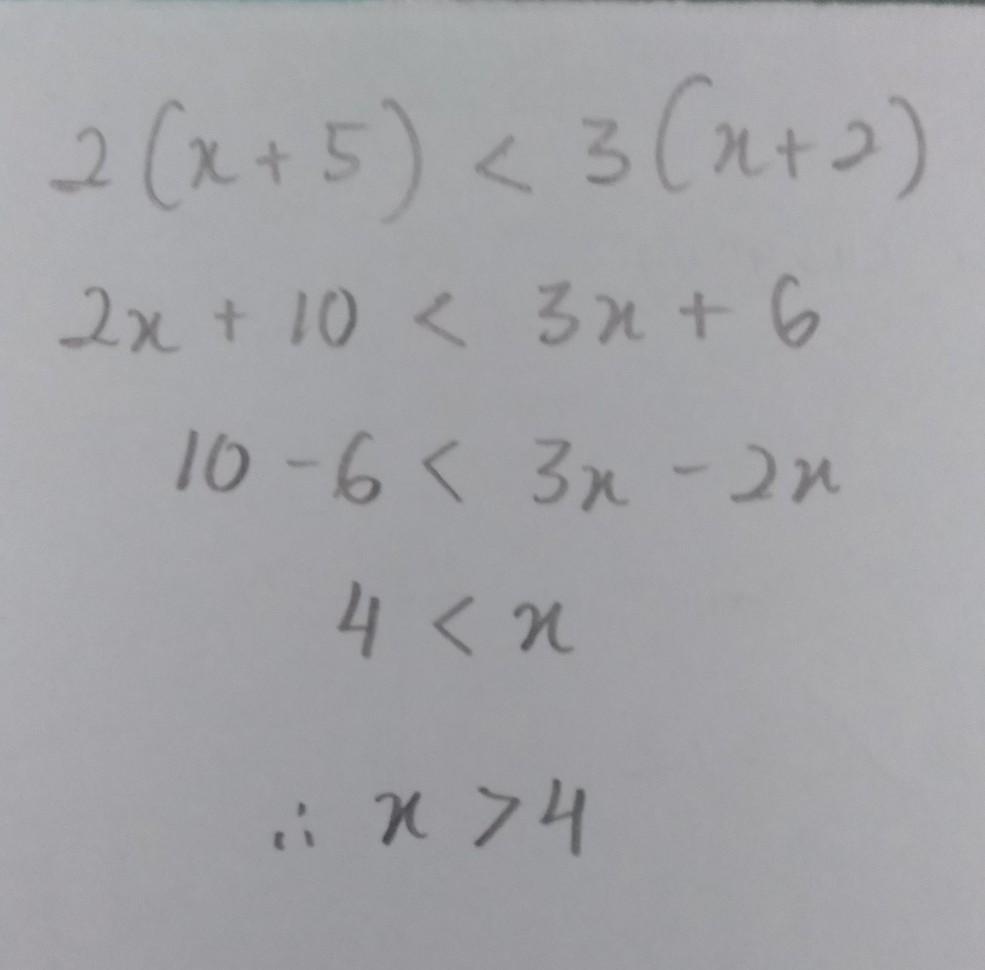 2(x+5) < 3(x+2)
2x + 10 < 3x + 6
10 - 6 < 3x - 2x
4 < x
∴ x > 4